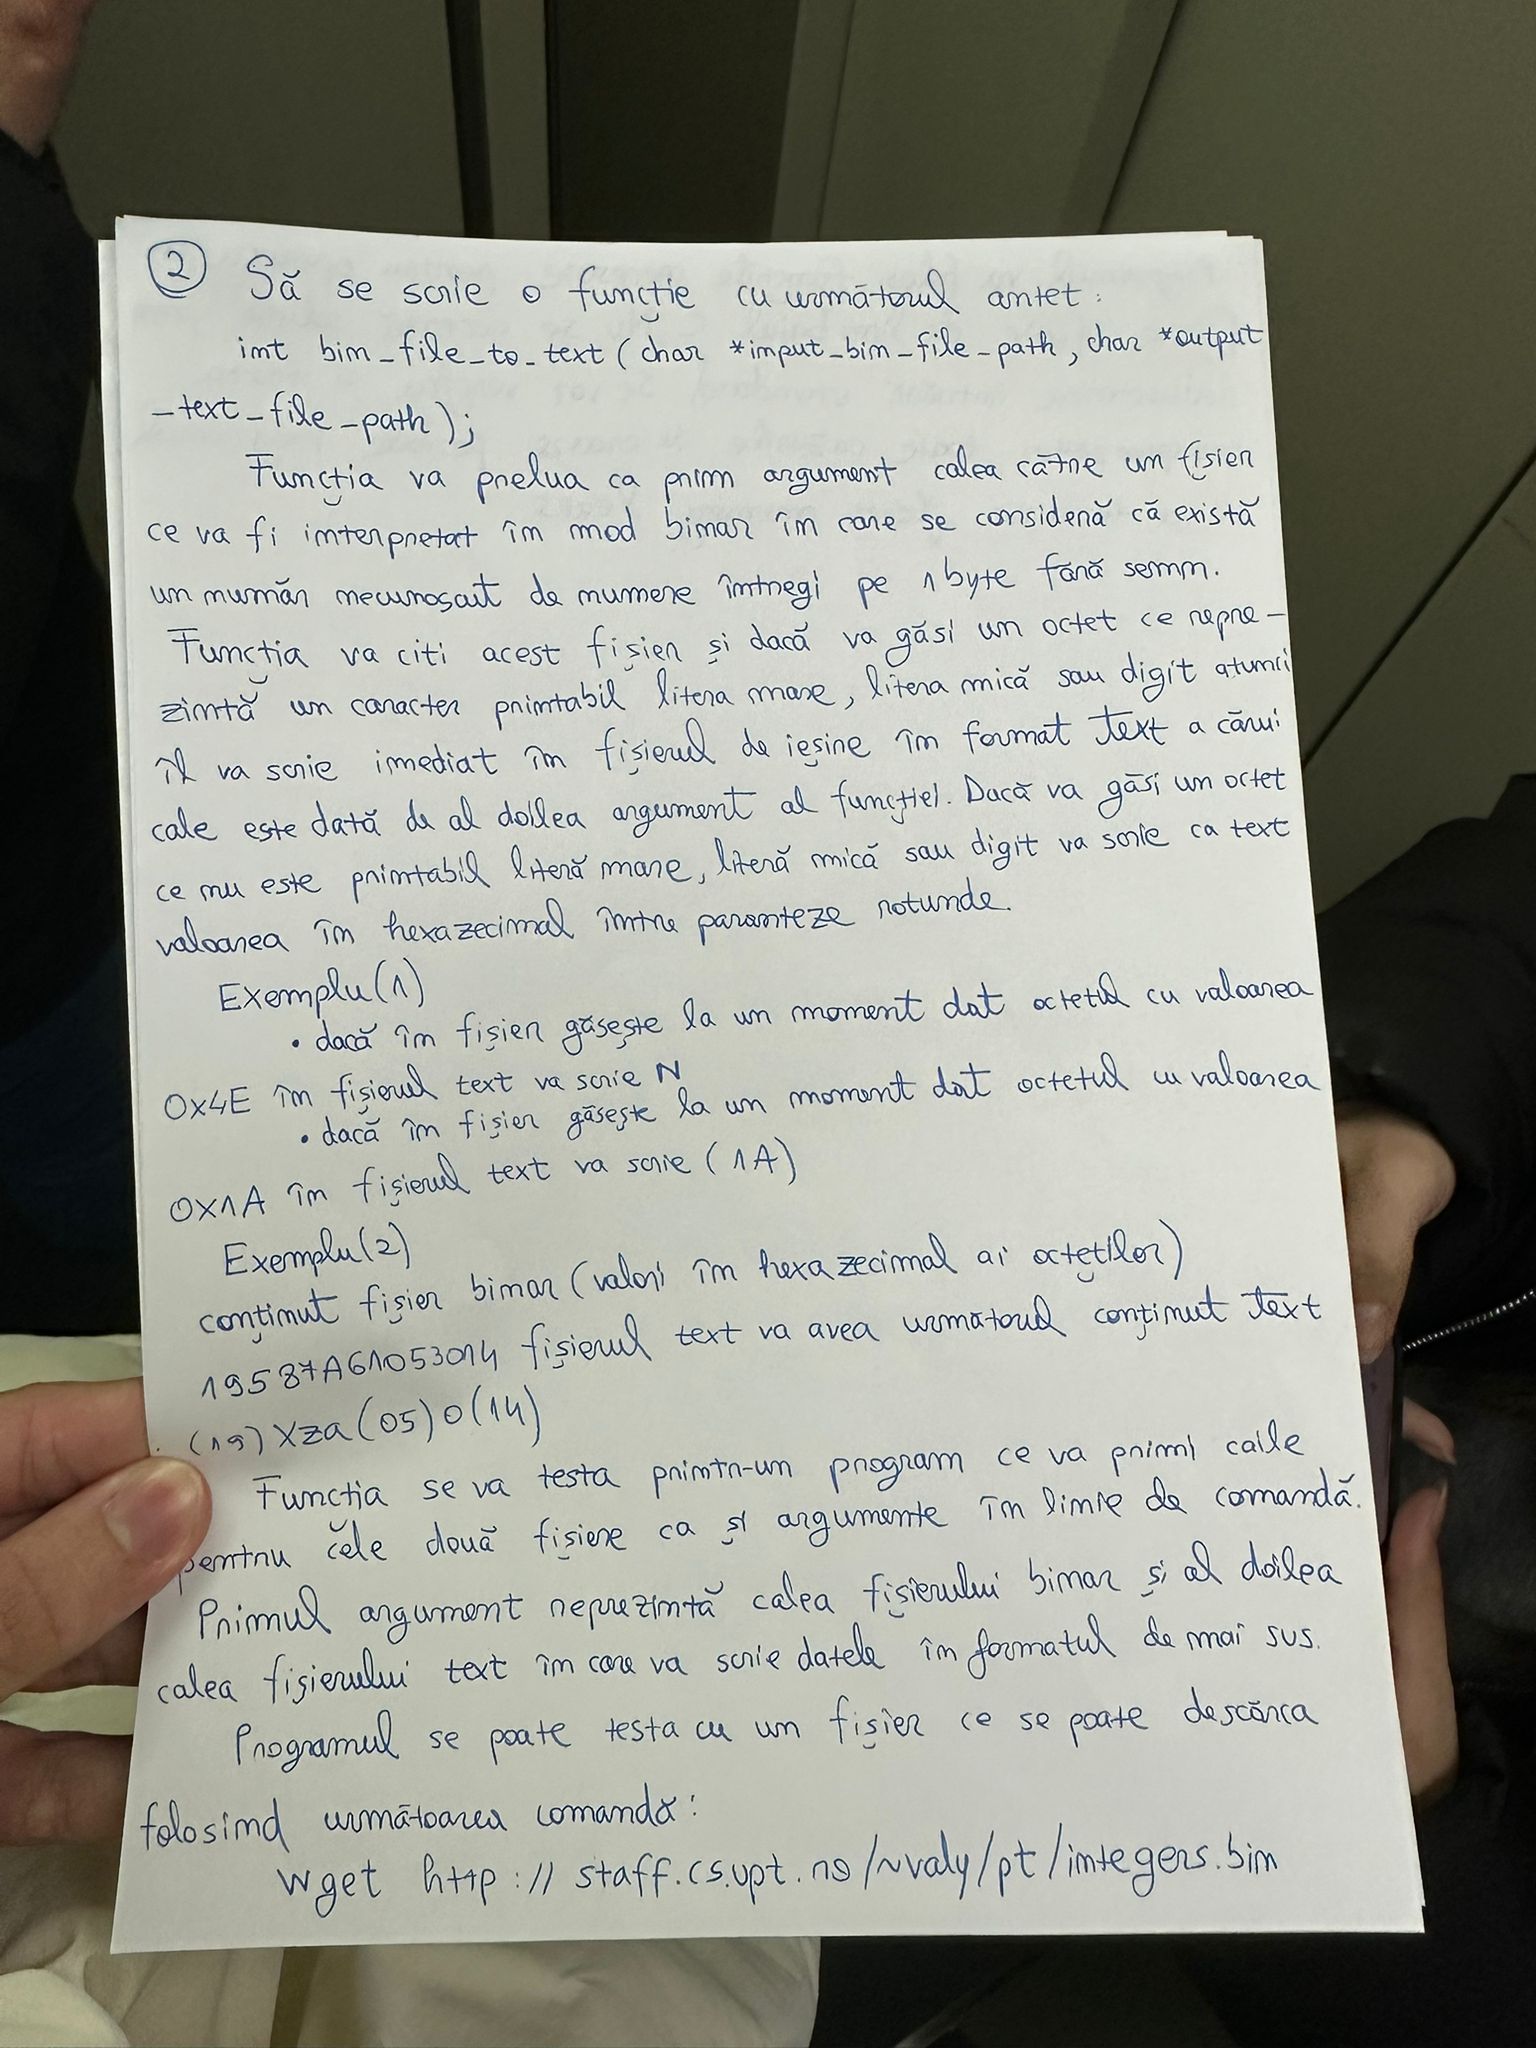 2 Să se scrie o funcție cu următorul antet:
int bin_file_to_text(char *input_bin_file_path, char *output
_text_file_path);
Funcția va prelua ca prim argument calea către un fișier
ce va fi interpretat în mod binar în care se consideră că există
un număr necunoscut de numere întregi pe 1 byte fără semn.
Funcția va citi acest fișier și dacă va găsi un octet ce repre-
zintă un caracter printabil litera mare, litera mică sau digit atunci
îl va scrie imediat în fișierul de ieșire în format text a cărui
cale este dată de al doilea argument al funcției. Dacă va găsi un octet
ce nu este printabil literă mare, literă mică sau digit va scrie ca text
valoarea în hexazecimal între paranteze rotunde.
Exemplu(1)
• dacă în fișier găsește la un moment dat octetul cu valoarea
0x4E în fișierul text va scrie N
• dacă în fișier găsește la un moment dat octetul cu valoarea
0x1A în fișierul text va scrie (1A)
Exemplu(2)
conținut fișier binar (valori în hexazecimal ai octeților)
19587A61053014 fișierul text va avea următorul conținut text
(19)Xza(05)0(14)
Funcția se va testa printr-un program ce va primi caile
pentru cele două fișiere ca și argumente în linie de comandă.
Primul argument reprezintă calea fișierului binar și al doilea
calea fișierului text în care va scrie datele în formatul de mai sus.
Programul se poate testa cu un fișier ce se poate descărca
folosind următoarea comandă:
wget http://staff.cs.upt.ro/~valy/pt/integers.bin